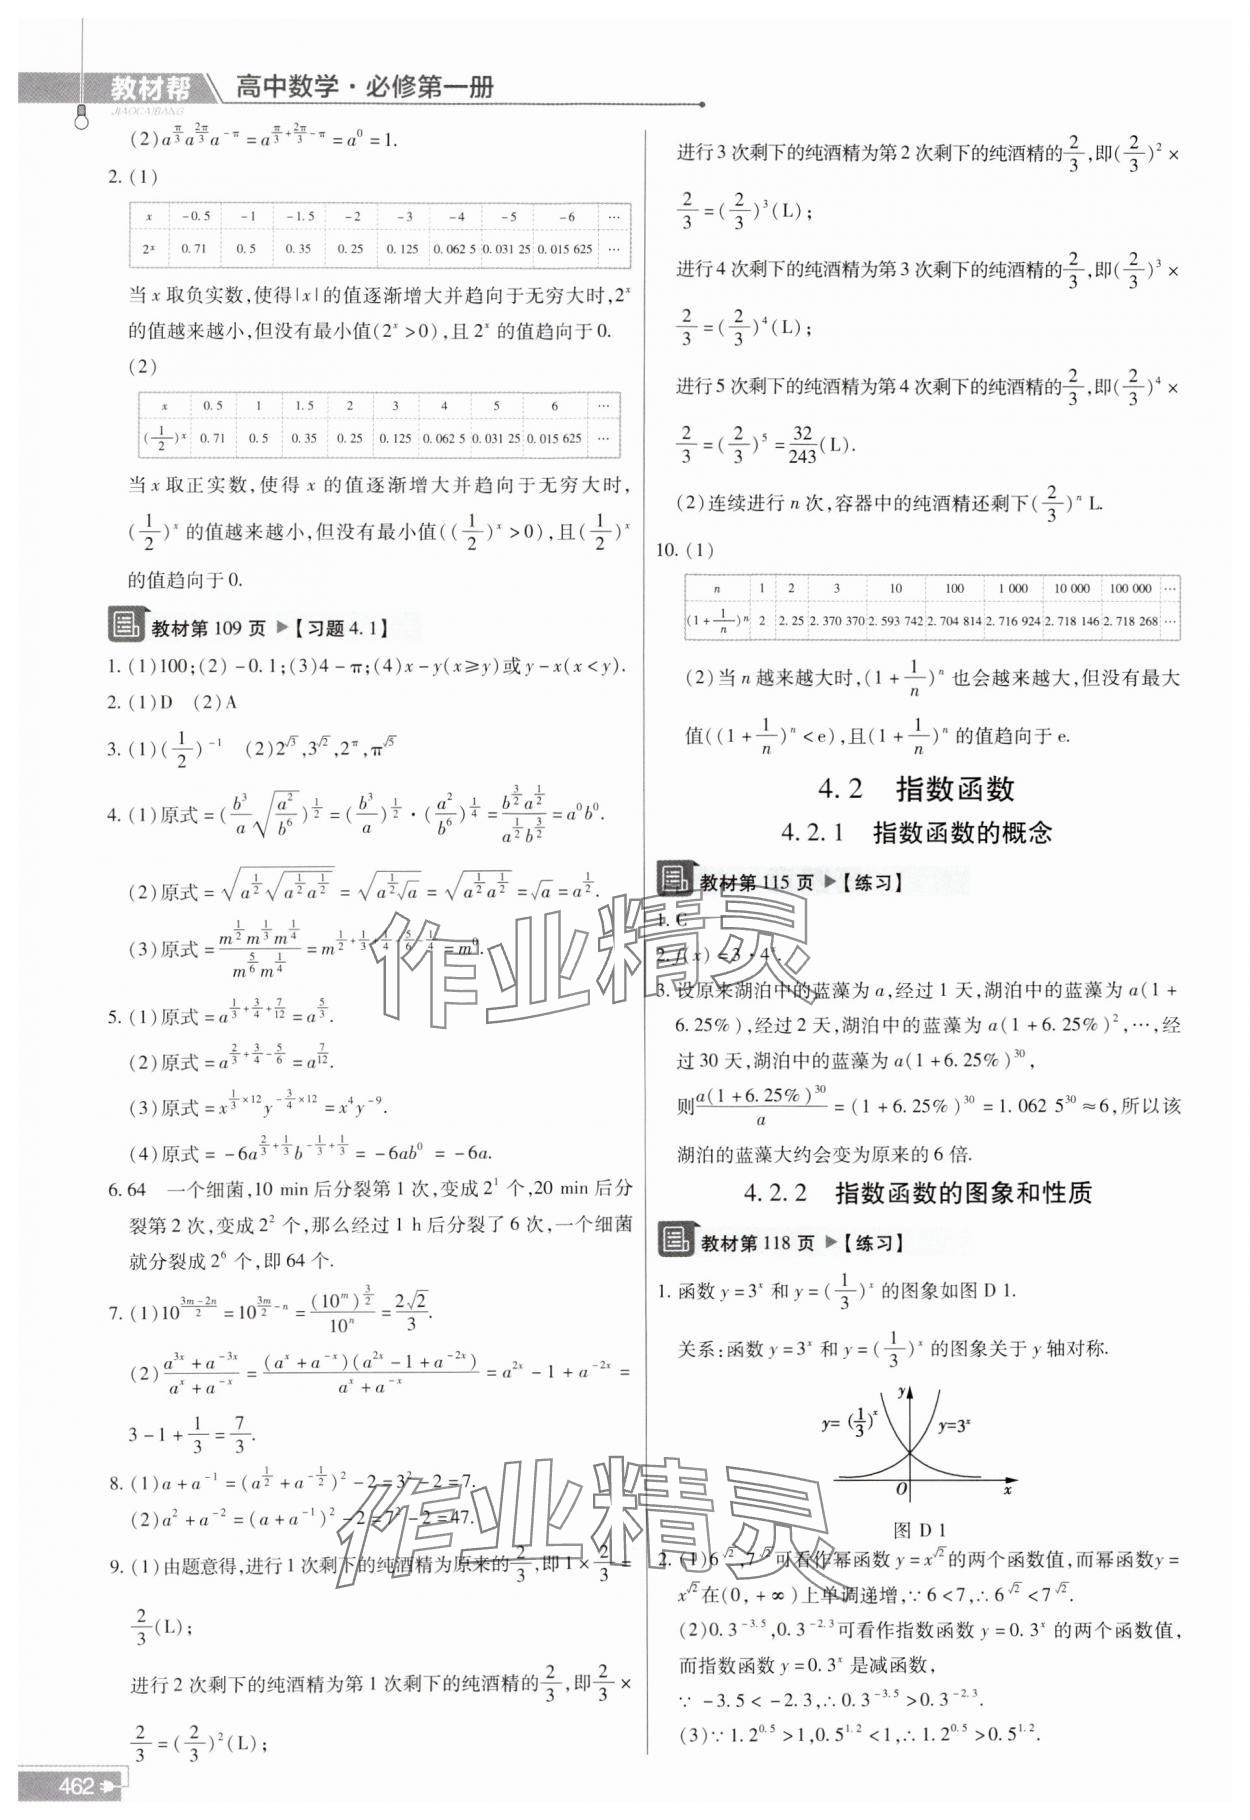 教材帮
JIAOCAIBANG
高中数学·必修第一册
(2)a^{π/3}a^{2π/3}a^{-π}=a^{π/3+2π/3-π}=a^0=1.
2.(1)
x -0.5 -1 -1.5 -2 -3 -4 -5 -6 …
2^x 0.71 0.5 0.35 0.25 0.125 0.062 5 0.031 25 0.015 625 …
当x取负实数,使得|x|的值逐渐增大并趋向于无穷大时,2^x
的值越来越小,但没有最小值(2^x>0),且2^x的值趋向于0.
(2)
x 0.5 1 1.5 2 3 4 5 6 …
(1/2)^x 0.71 0.5 0.35 0.25 0.125 0.062 5 0.031 25 0.015 625 …
当x取正实数,使得x的值逐渐增大并趋向于无穷大时,
(1/2)^x的值越来越小,但没有最小值((1/2)^x>0),且(1/2)^x
的值趋向于0.
教材第109页▶【习题4.1】
1.(1)100;(2)-0.1;(3)4-π;(4)x-y(x≥y)或y-x(x<y).
2.(1)D (2)A
3.(1)(1/2)^{-1} (2)2^{√3},3^{√2},2^π,π^{√5}
4.(1)原式=(b^3/a √(a^2/b^6))^{1/2}=(b^3/a)^{1/2}·(a^2/b^6)^{1/4}=b^{3/2}a^{1/2}/(a^{1/2}b^{3/2})=a^0b^0.
(2)原式=√(a^{1/2}√(a^{1/2}a^{1/2}))=√(a^{1/2}√a)=√(a^{1/2}a^{1/2})=√a=a^{1/2}.
(3)原式=m^{1/2}m^{1/3}m^{1/4}/(m^{5/6}m^{1/4})=m^{1/2+1/3+1/4-5/6-1/4}=m^0.
5.(1)原式=a^{1/3+3/4+7/12}=a^{5/3}.
(2)原式=a^{2/3+3/4-5/6}=a^{7/12}.
(3)原式=x^{1/3×12}y^{-3/4×12}=x^4y^{-9}.
(4)原式=-6a^{2/3+1/3}b^{-1/3+1/3}=-6ab^0=-6a.
6.64 一个细菌,10 min后分裂第1次,变成2^1个,20 min后分
裂第2次,变成2^2个,那么经过1 h后分裂了6次,一个细菌
就分裂成2^6个,即64个.
7.(1)10^{(3m-2n)/2}=10^{3m/2-n}=(10^m)^{3/2}/10^n=2√2/3.
(2)(a^{3x}+a^{-3x})/(a^x+a^{-x})=(a^x+a^{-x})(a^{2x}-1+a^{-2x})/(a^x+a^{-x})=a^{2x}-1+a^{-2x}=
3-1+1/3=7/3.
8.(1)a+a^{-1}=(a^{1/2}+a^{-1/2})^2-2=3^2-2=7.
(2)a^2+a^{-2}=(a+a^{-1})^2-2=7^2-2=47.
9.(1)由题意得,进行1次剩下的纯酒精为原来的2/3,即1×2/3=
2/3(L);
进行2次剩下的纯酒精为第1次剩下的纯酒精的2/3,即2/3×
2/3=(2/3)^2(L);
462
进行3次剩下的纯酒精为第2次剩下的纯酒精的2/3,即(2/3)^2×
2/3=(2/3)^3(L);
进行4次剩下的纯酒精为第3次剩下的纯酒精的2/3,即(2/3)^3×
2/3=(2/3)^4(L);
进行5次剩下的纯酒精为第4次剩下的纯酒精的2/3,即(2/3)^4×
2/3=(2/3)^5=32/243(L).
(2)连续进行n次,容器中的纯酒精还剩下(2/3)^n L.
10.(1)
n 1 2 3 10 100 1 000 10 000 100 000 …
(1+1/n)^n 2 2.25 2.370 370 2.593 742 2.704 814 2.716 924 2.718 146 2.718 268 …
(2)当n越来越大时,(1+1/n)^n也会越来越大,但没有最大
值((1+1/n)^n<e),且(1+1/n)^n的值趋向于e.
4.2 指数函数
4.2.1 指数函数的概念
教材第115页▶【练习】
1.C
2.f(x)=3·4^x.
3.设原来湖泊中的蓝藻为a,经过1天,湖泊中的蓝藻为a(1+
6.25%),经过2天,湖泊中的蓝藻为a(1+6.25%)^2,…,经
过30天,湖泊中的蓝藻为a(1+6.25%)^{30},
则a(1+6.25%)^{30}/a=(1+6.25%)^{30}=1.062 5^{30}≈6,所以该
湖泊的蓝藻大约会变为原来的6倍.
4.2.2 指数函数的图象和性质
教材第118页▶【练习】
1.函数y=3^x和y=(1/3)^x的图象如图D 1.
关系:函数y=3^x和y=(1/3)^x的图象关于y轴对称.
y
y=(1/3)^x
y=3^x
O
x
图 D 1
2.(1)6^{√2},7^{√2}可看作幂函数y=x^{√2}的两个函数值,而幂函数y=
x^{√2}在(0,+∞)上单调递增,∵6<7,∴6^{√2}<7^{√2}.
(2)0.3^{-3.5},0.3^{-2.3}可看作指数函数y=0.3^x的两个函数值,
而指数函数y=0.3^x是减函数,
∵-3.5<-2.3,∴0.3^{-3.5}>0.3^{-2.3}.
(3)∵1.2^{0.5}>1,0.5^{1.2}<1,∴1.2^{0.5}>0.5^{1.2}.
作业精灵
作业精灵